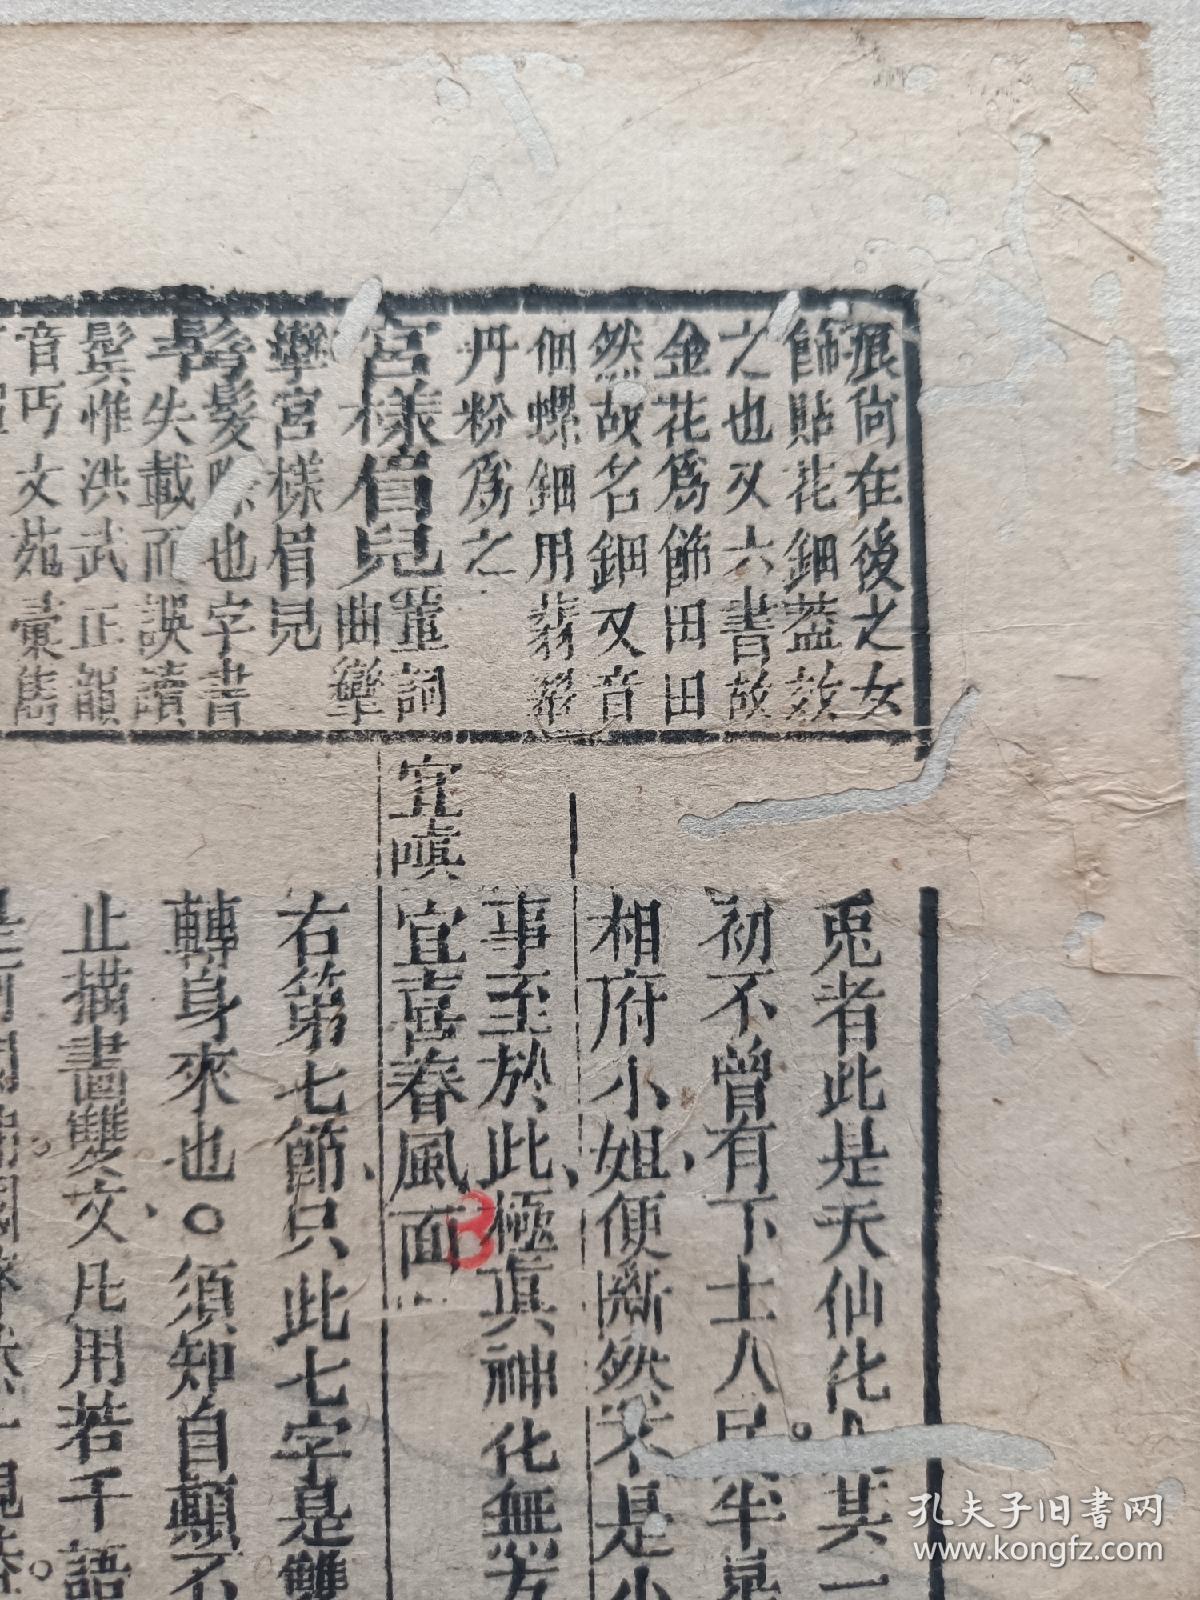 痕尙在後之女
飾貼花鈿葢效
之也又六書故
金花爲飾田田
然故名鈿又音
佃螺鈿用翡翠
丹粉爲之
宮様眉兒董詞
曲欒
欒宮様眉兒
髩髮際也字書
失載而誤讀
鬂惟洪武正韻
音丐文苑彙雋
宜嗔
兎者此是天仙化人其一
初不曾有下土人民半晷
相府小姐便斷然不是小
事至於此極眞神化無方
宜喜春風面
右第七節只此七字是雙
轉身來也○須知自顛不
止描畫雙文凡用若干語
B
孔夫子旧書网
www.kongfz.com